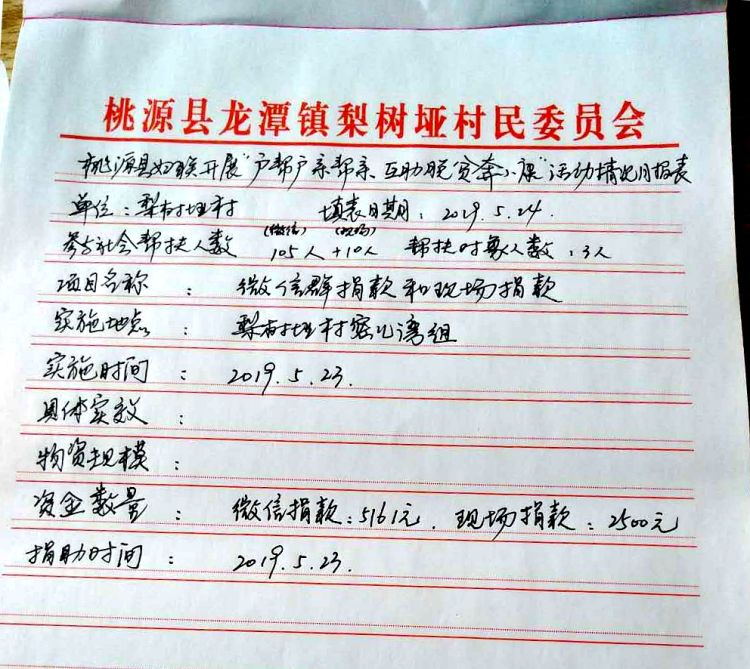 桃源县龙潭镇梨树垭村民委员会
桃源县妇联开展“户帮户亲帮亲、互助脱贫奔小康”活动情况月报表
单位：梨树垭村 填表日期：2019.5.24.
(微信) (现场)
参与社会帮扶人数 105人+10人 帮扶对象人数：3人
项目名称： 微信群捐款和现场捐款
实施地点： 梨树垭村窑儿湾组
实施时间： 2019.5.23.
具体实效：
物资规模：
资金数量： 微信捐款：5161元．现场捐款：2500元
捐助时间： 2019.5.23.